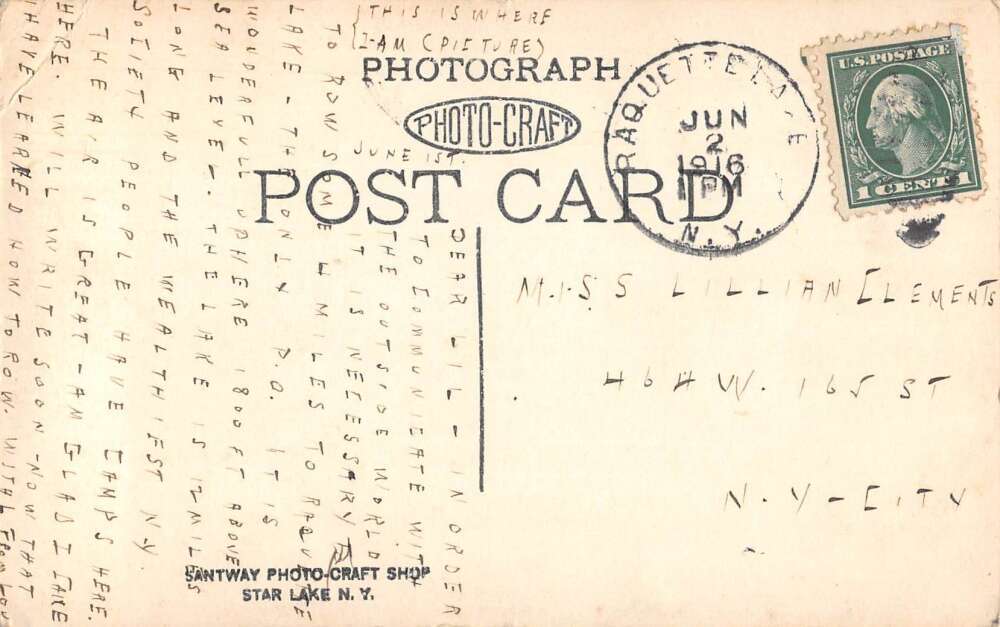 {THIS IS WHERE
{I-AM (PICTURE)
PHOTOGRAPH
PHOTO-CRAFT
POST CARD
RAQUETTE LAKE
JUN
2
1916
PM
N.Y.
U.S. POSTAGE
1 CENT 1
JUNE 1ST.
DEAR LIL - IN ORDER
TO COMMUNICATE WITH
THE OUTSIDE WORLD
IT IS NECESSARY
TO ROW SOME 4 MILES TO RAQUETTE
LAKE - THE ONLY P.O. IT IS
WONDERFULL UP HERE 1800 FT ABOVE
SEA LEVEL - THE LAKE IS 12 MILES
LONG AND THE WEALTHIEST N.Y
SOCIETY PEOPLE HAVE CAMPS HERE.
THE AIR IS GREAT - AM GLAD I CAME
HERE. WILL WRITE SOON - NOW THAT
I HAVE LEARNED HOW TO ROW. WITH FROM LOU
MISS LILLIAN CLEMENTS
464 W. 165 ST
N.Y-CITY
SANTWAY PHOTO-CRAFT SHOP
STAR LAKE N.Y.